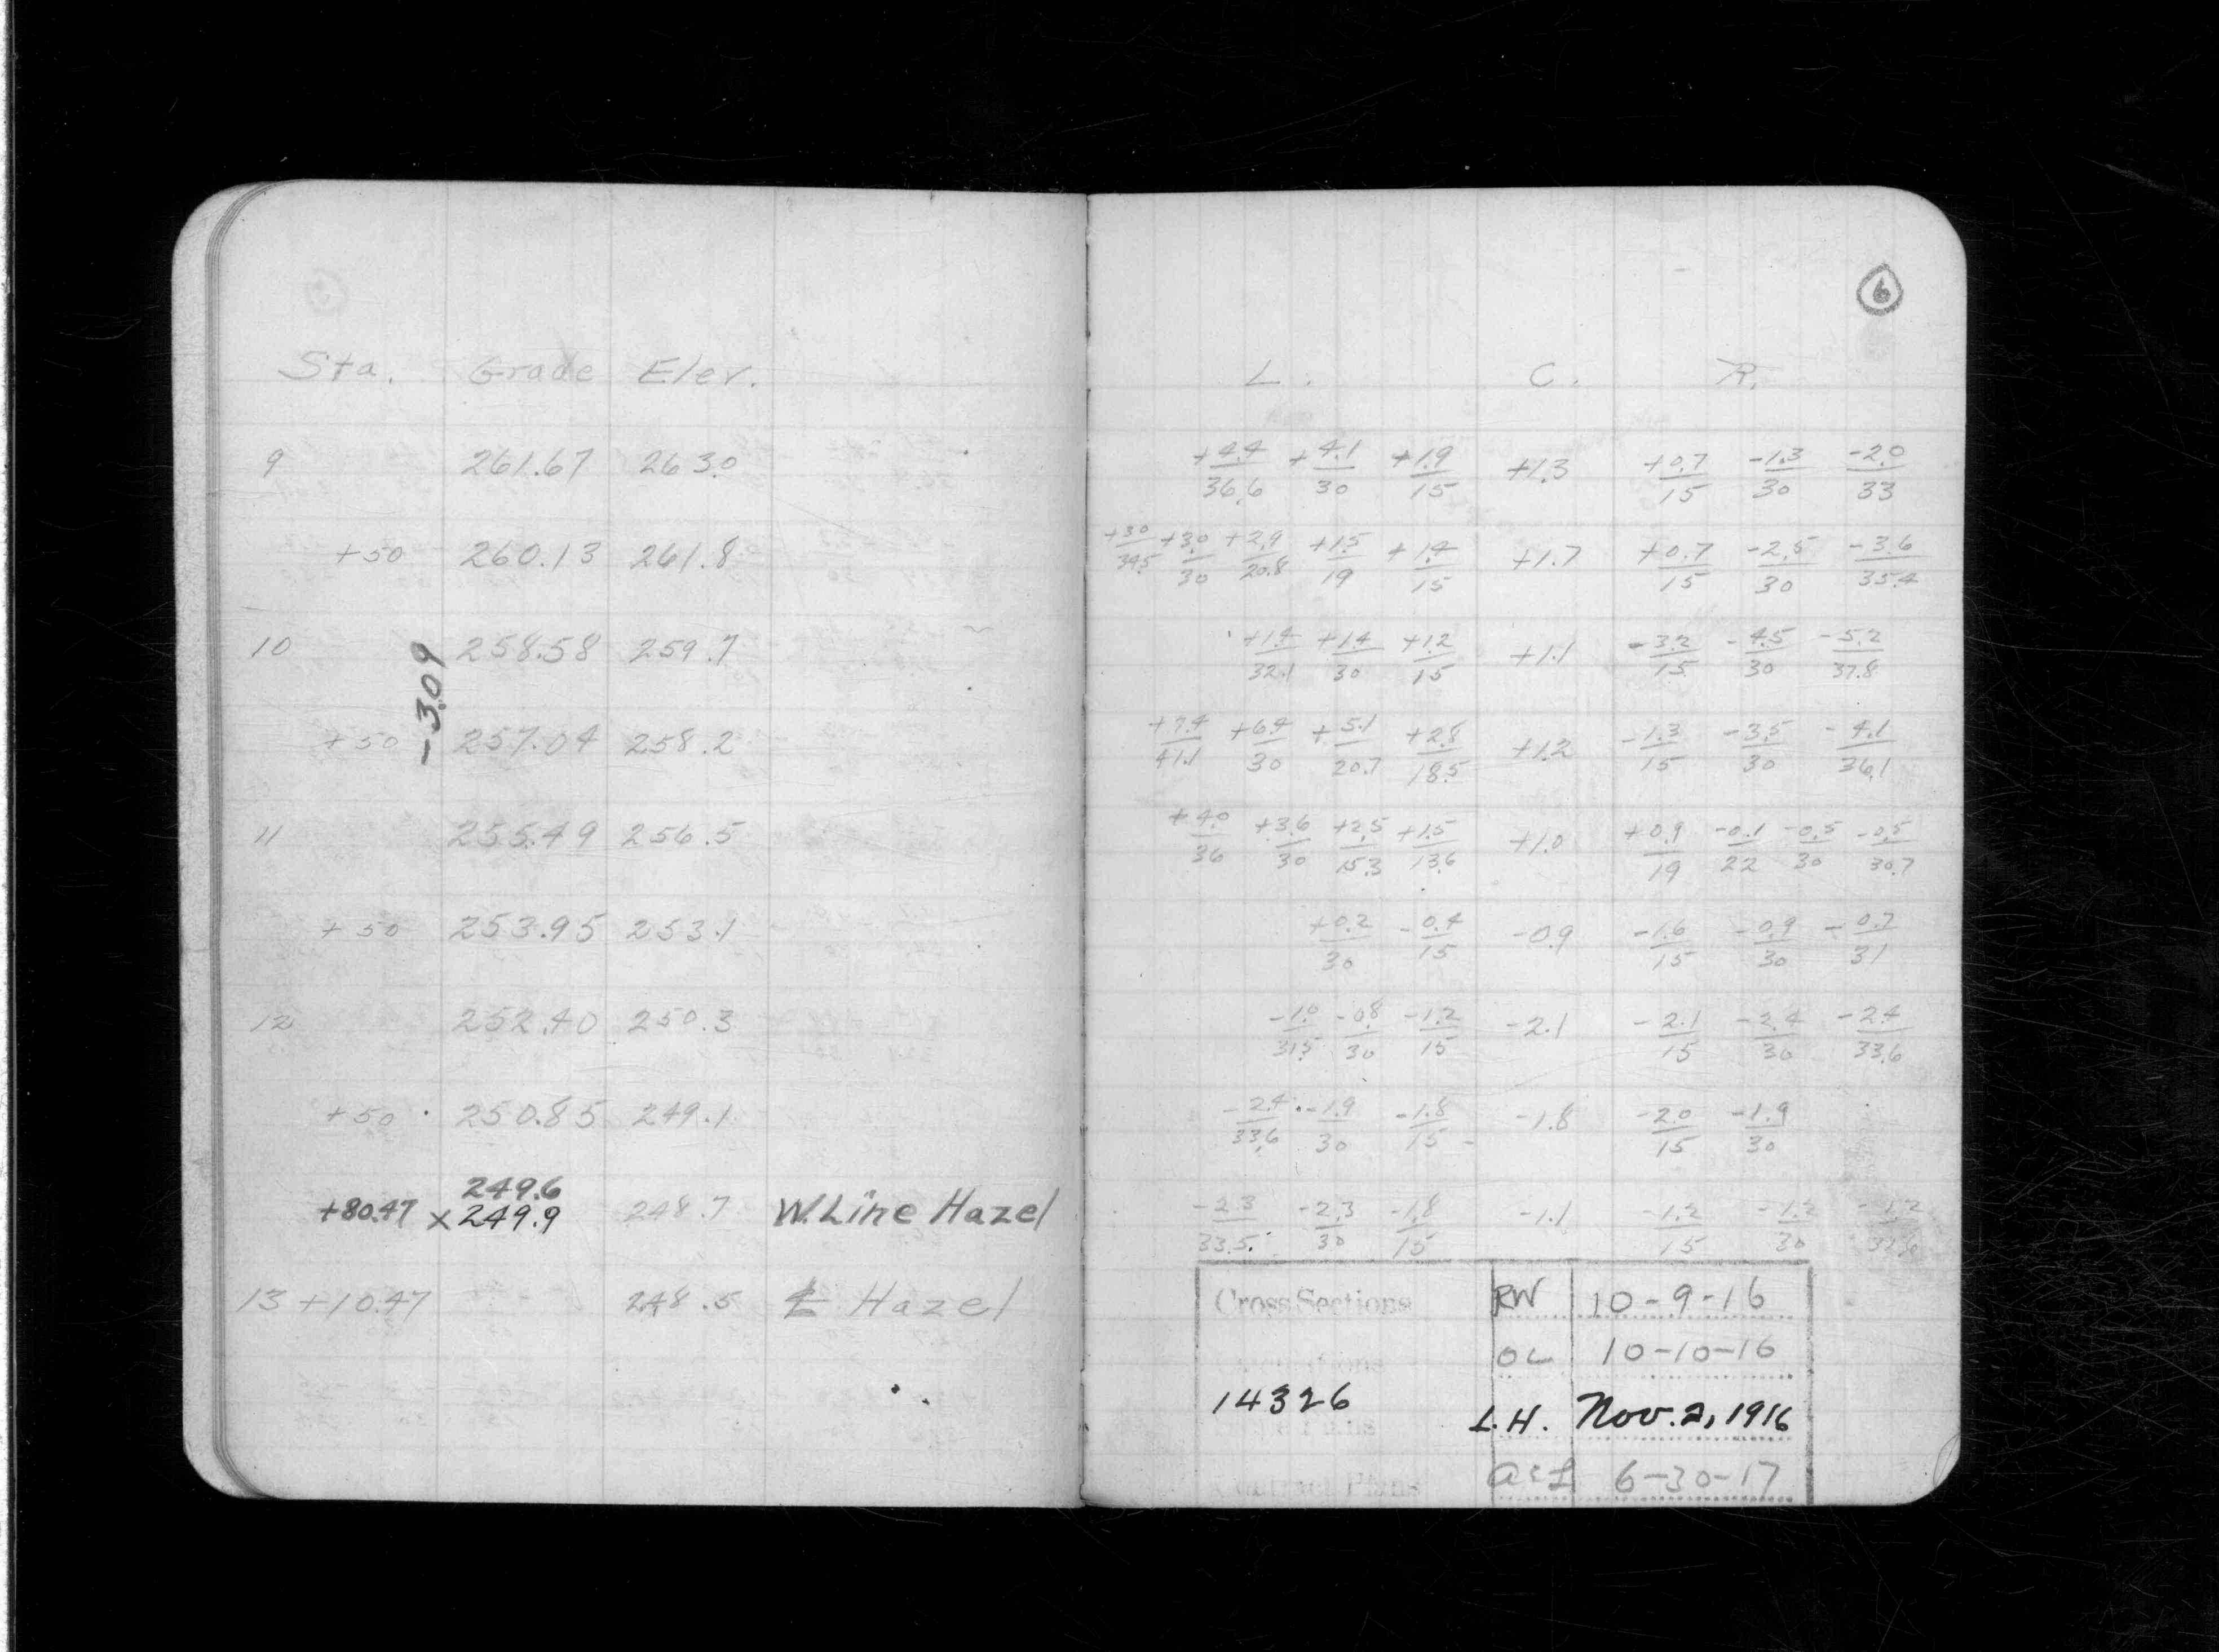 6
Sta. Grade Elev. L. C. R.
9 261.67 263.0 +4.4/36.6 +4.1/30 +1.9/15 +1.3 +0.7/15 -1.3/30 -2.0/33
+50 260.13 261.8 +3.0/39.5 +3.0/30 +2.9/20.8 +1.5/19 +1.4/15 +1.7 +0.7/15 -2.5/30 -3.6/35.4
10 258.58 259.7 +1.4/32.1 +1.4/30 +1.2/15 +1.1 -3.2/15 -4.5/30 -5.2/37.8
-3.09
+50 257.04 258.2 +7.4/41.1 +6.4/30 +5.1/20.7 +2.8/18.5 +1.2 -1.3/15 -3.5/30 -4.1/36.1
11 255.49 256.5 +4.0/36 +3.6/30 +2.5/15.3 +1.5/13.6 +1.0 +0.9/19 -0.1/22 -0.5/30 -0.5/30.7
+50 253.95 253.1 +0.2/30 -0.4/15 -0.9 -1.6/15 -0.9/30 -0.7/31
12 252.40 250.3 -1.0/31.5 -0.8/30 -1.2/15 -2.1 -2.1/15 -2.4/30 -2.4/33.6
+50 250.85 249.1 -2.4/33.6 -1.9/30 -1.8/15 -1.8 -2.0/15 -1.9/30
249.6
+80.47 x 249.9 248.7 W. Line Hazel -2.3/33.5 -2.3/30 -1.8/15 -1.1 -1.2/15 -1.2/30
13 +10.47 248.5 ℄ Hazel
Cross Sections RW 10-9-16
OL 10-10-16
14326 L.H. Nov. 2, 1916
Contract Plans 6-30-17